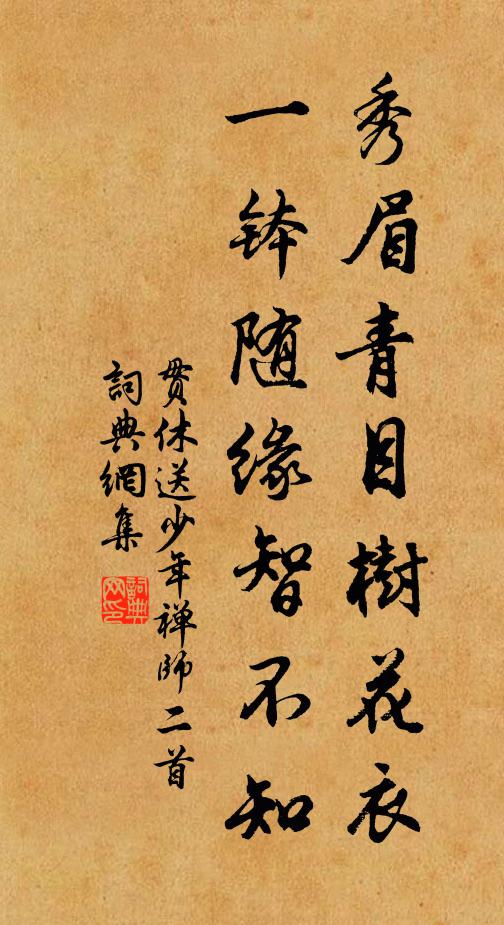 秀眉青目樹花衣
一鉢随緣智不知
貫休送少年禅師二首
詞典網集
詞典網印